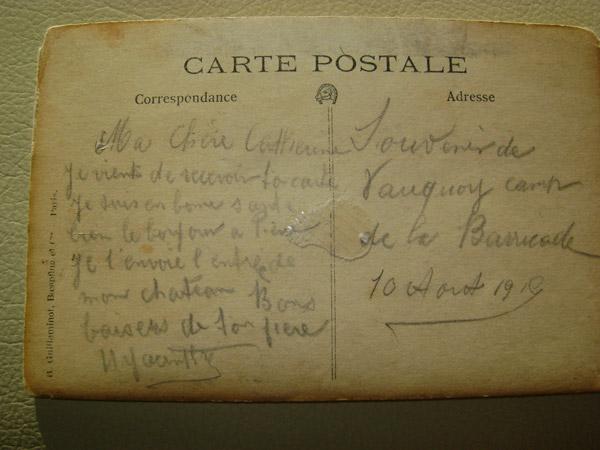 CARTE POSTALE
Correspondance
Adresse
Ma Chère Catherine
je viens de recevoir ta carte
je suis en bonne santé
bien le bonjour à
je t'envoie l'entrée de
mon chateau Bons
baisers de ton frère
Hyacinthe
Souvenir de
Vauquoy camp
de la Barricade
10 Aout
A. Guilleminot, Bœspflug et Cie Paris.